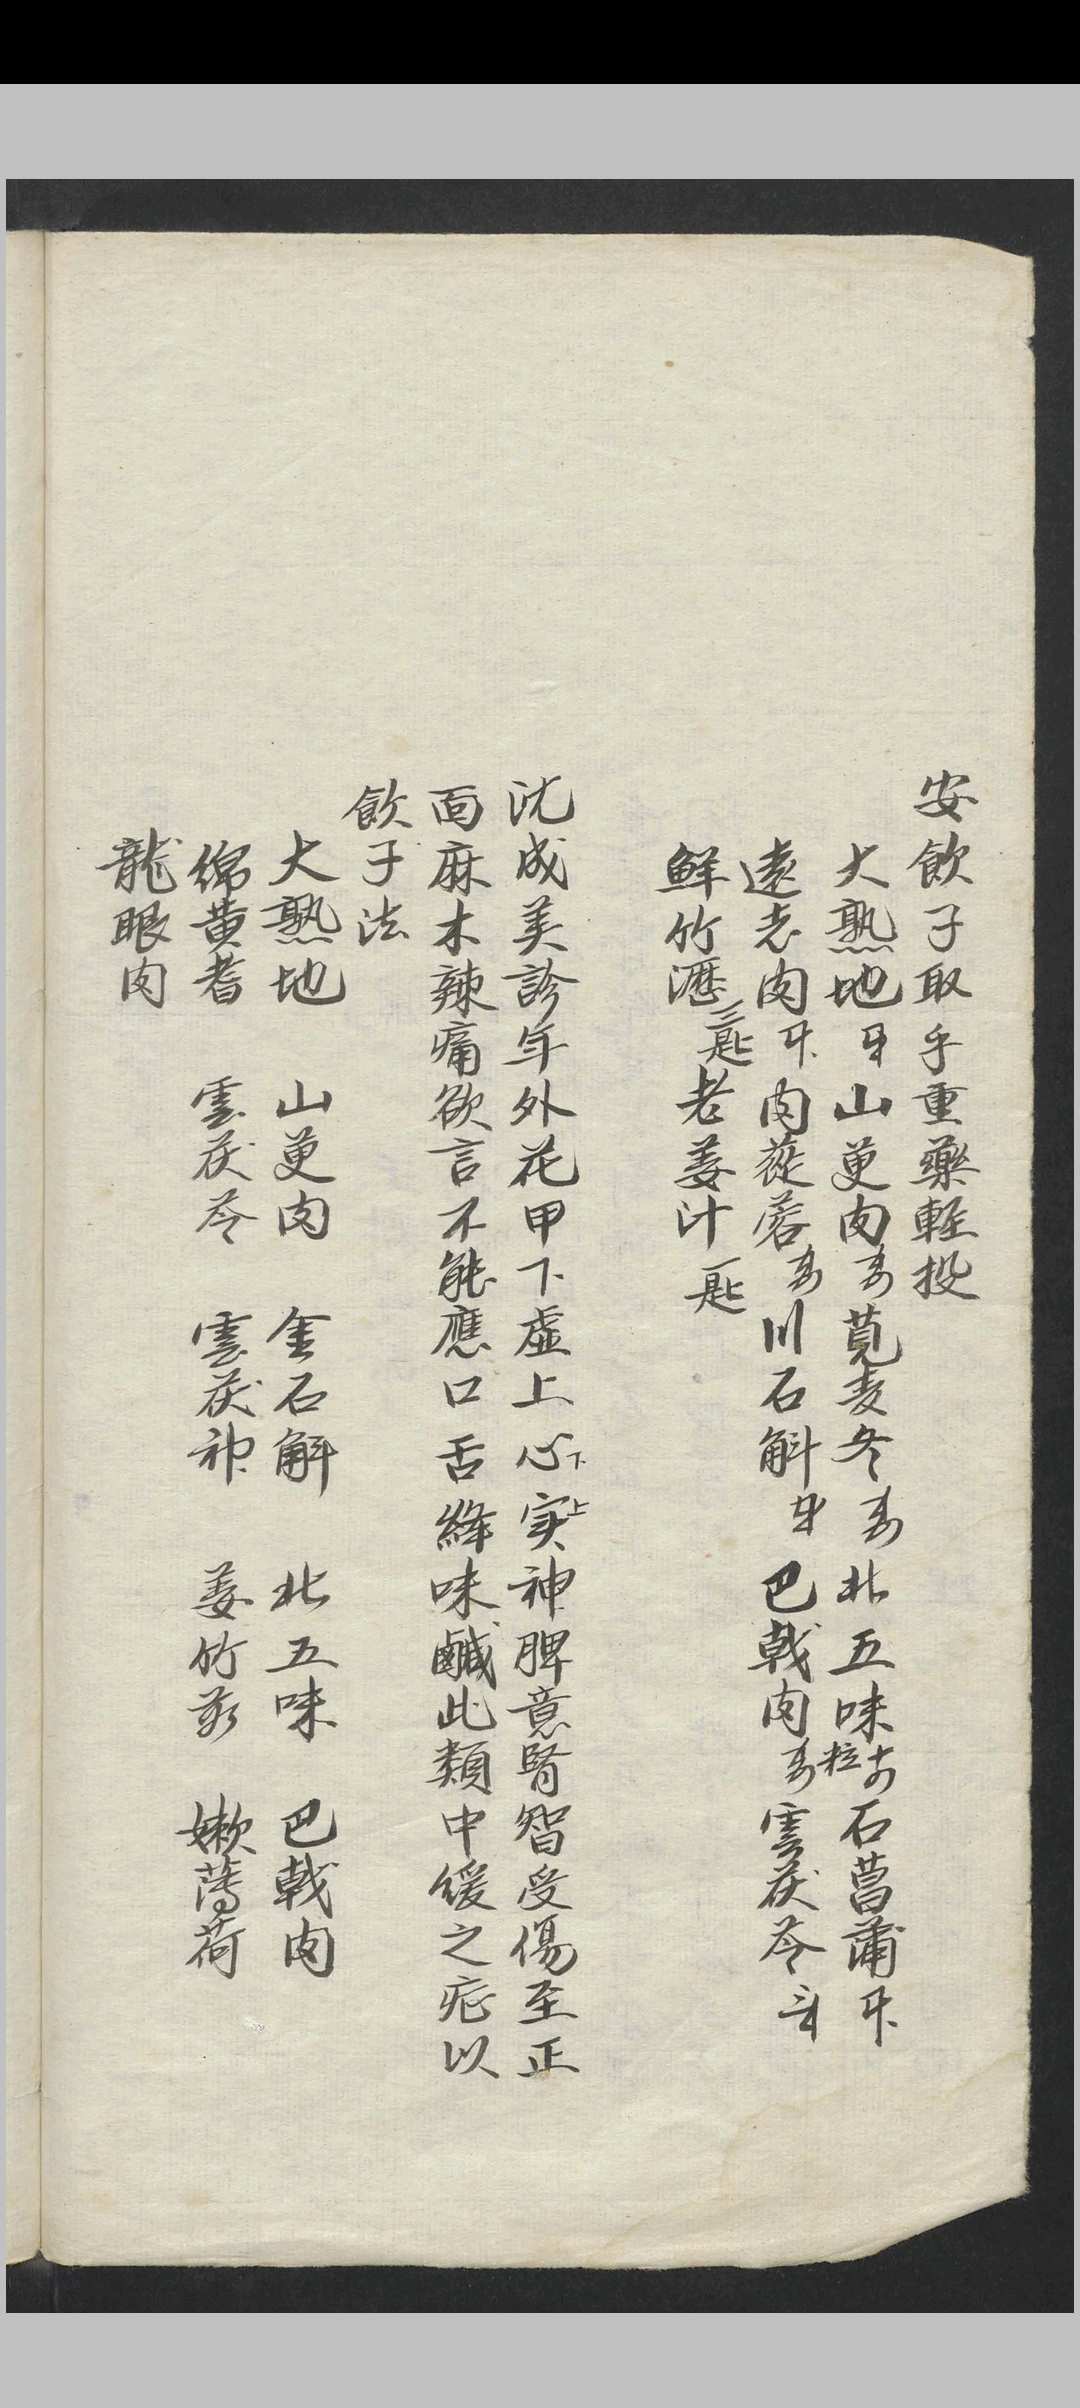 安飲子取乎重藥輕投
大熟地 山萸肉 莧麦冬 北五味粒 石菖蒲
遠志肉 肉蓯蓉 川石斛 巴戟肉 雲茯苓
鲜竹瀝三匙老姜汁一匙
沈成美診年外花甲下虛上心下实上神脾意腎智受傷至正
面麻木辣痛欲言不能應口舌絳味鹹此類中緩之症以
飲子法
大熟地 山萸肉 金石斛 北五味 巴戟肉
綿黄耆 雲茯苓 雲茯神 姜竹茹 嫩薄荷
龍眼肉